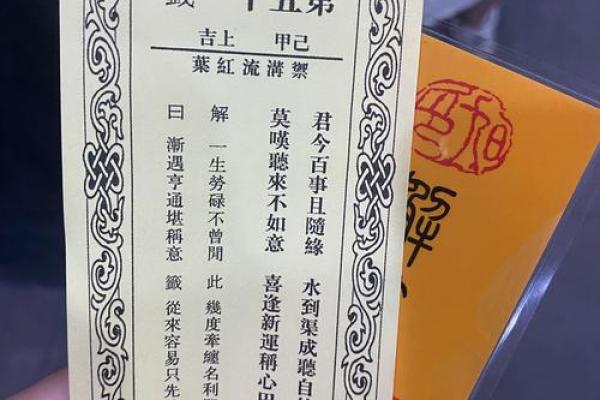 第五十籤
己甲 上吉
禦溝流紅葉
君今百事且隨緣 水到渠成聽自
莫嘆聽來不如意 喜逢新運稱心
解 一生勞碌不曾閒 此 幾度牽纏名利
曰 漸遇亨通堪稱意 籤 從來容易只先
解